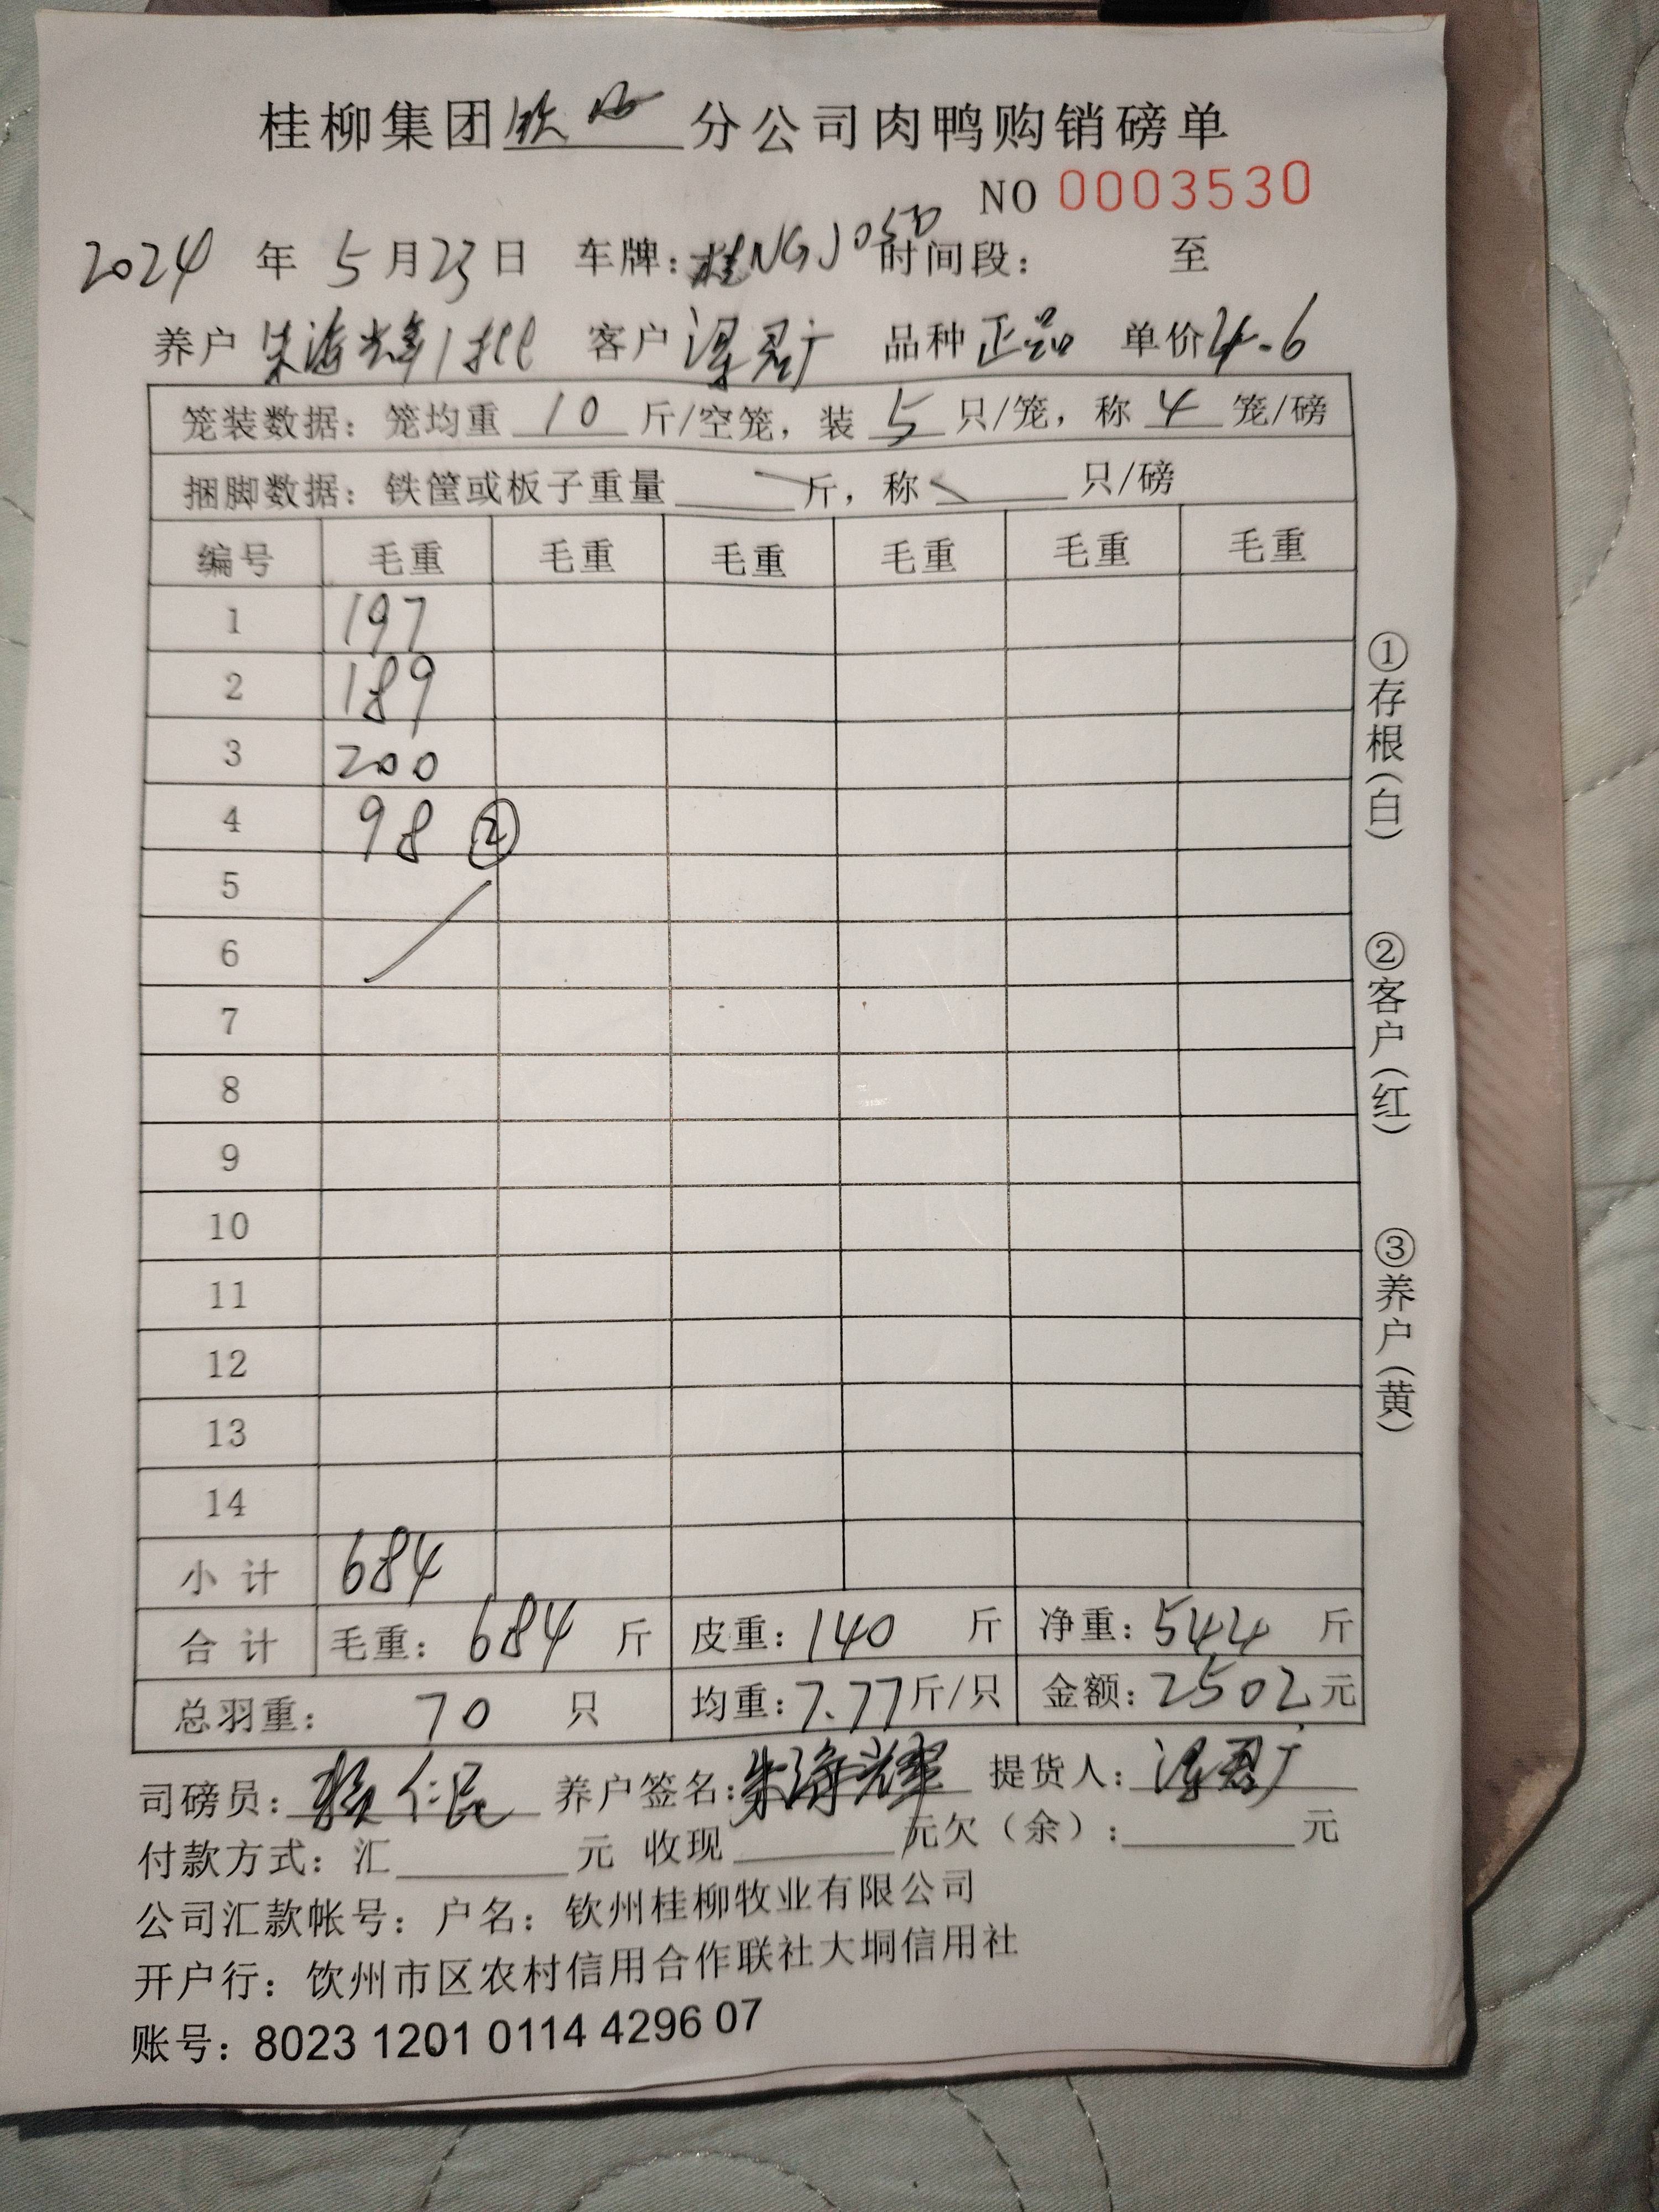 桂柳集团钦州分公司肉鸭购销磅单
NO 0003530
2024 年 5 月 23 日 车牌：桂NGJ050 时间段： 至
养户 朱海辉1批 客户 梁君广 品种 正品 单价 4.6
笼装数据：笼均重 10 斤/空笼，装 5 只/笼，称 4 笼/磅
捆脚数据：铁筐或板子重量 斤，称 只/磅
编号 毛重 毛重 毛重 毛重 毛重 毛重
1 197
2 189
3 200
4 98 ②
5
6
7
8
9
10
11
12
13
14
小计 684
合计 毛重：684 斤 皮重：140 斤 净重：544 斤
总羽重： 70 只 均重：7.77斤/只 金额：2502元
司磅员： 仁民 养户签名：朱海辉 提货人：梁君广
付款方式：汇 元 收现 元欠（余）： 元
公司汇款帐号：户名：钦州桂柳牧业有限公司
开户行：钦州市区农村信用合作联社大垌信用社
账号：8023 1201 0114 4296 07
①存根（白）
②客户（红）
③养户（黄）